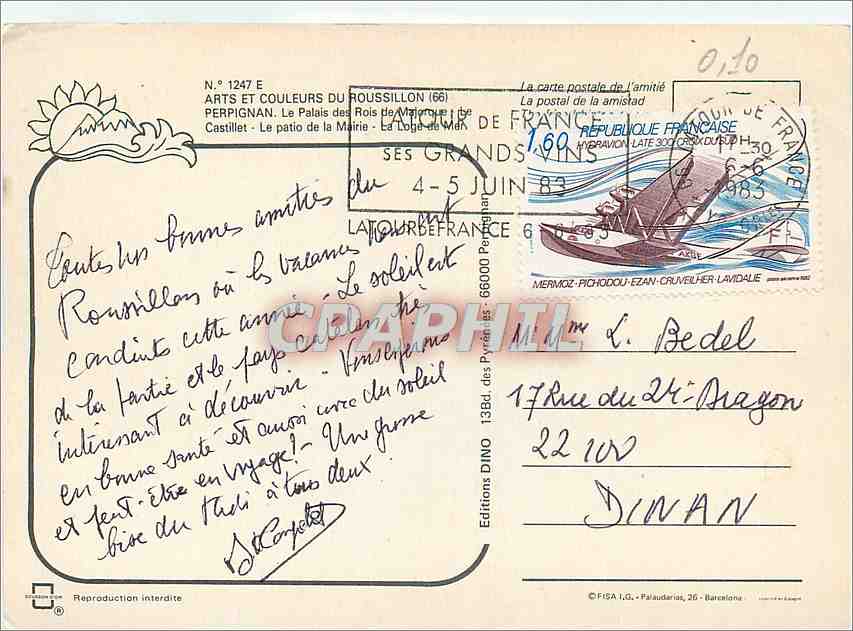 0,10
N.° 1247 E
ARTS ET COULEURS DU ROUSSILLON (66)
PERPIGNAN. Le Palais des Rois de Majorque - Le
Castillet - Le patio de la Mairie - La Loge de Mer
La carte postale de l'amitié
La postal de la amistad
LATOUR DE FRANCE
SES GRANDS VINS
4-5 JUIN 83
LATOUR DE FRANCE 6 6 83
LATOUR DE FRANCE
17H30
6-6
1983
1,60 RÉPUBLIQUE FRANÇAISE
HYDRAVION LATÉ 300 CROIX DU SUD
MERMOZ-PICHODOU-EZAN-CRUVEILHER-LAVIDALIE
Toutes nos bonnes amitiés du
Roussillon où les vacances nous ont
conduits cette année. Le soleil est
de la partie et le pays catalan très
intéressant à découvrir. Vous espérons
en bonne santé et aussi avec du soleil
et peut-être en voyage! - Une grosse
bise du Midi à tous deux.
Editions DINO 13Bd. des Pyrénées - 66000 Perpignan
CPAPHIL
Mr Mme L. Bedel
17 Rue du 24e Dragon
22 100
DINAN
Reproduction interdite
© FISA I.G. - Palaudarias, 26 - Barcelona